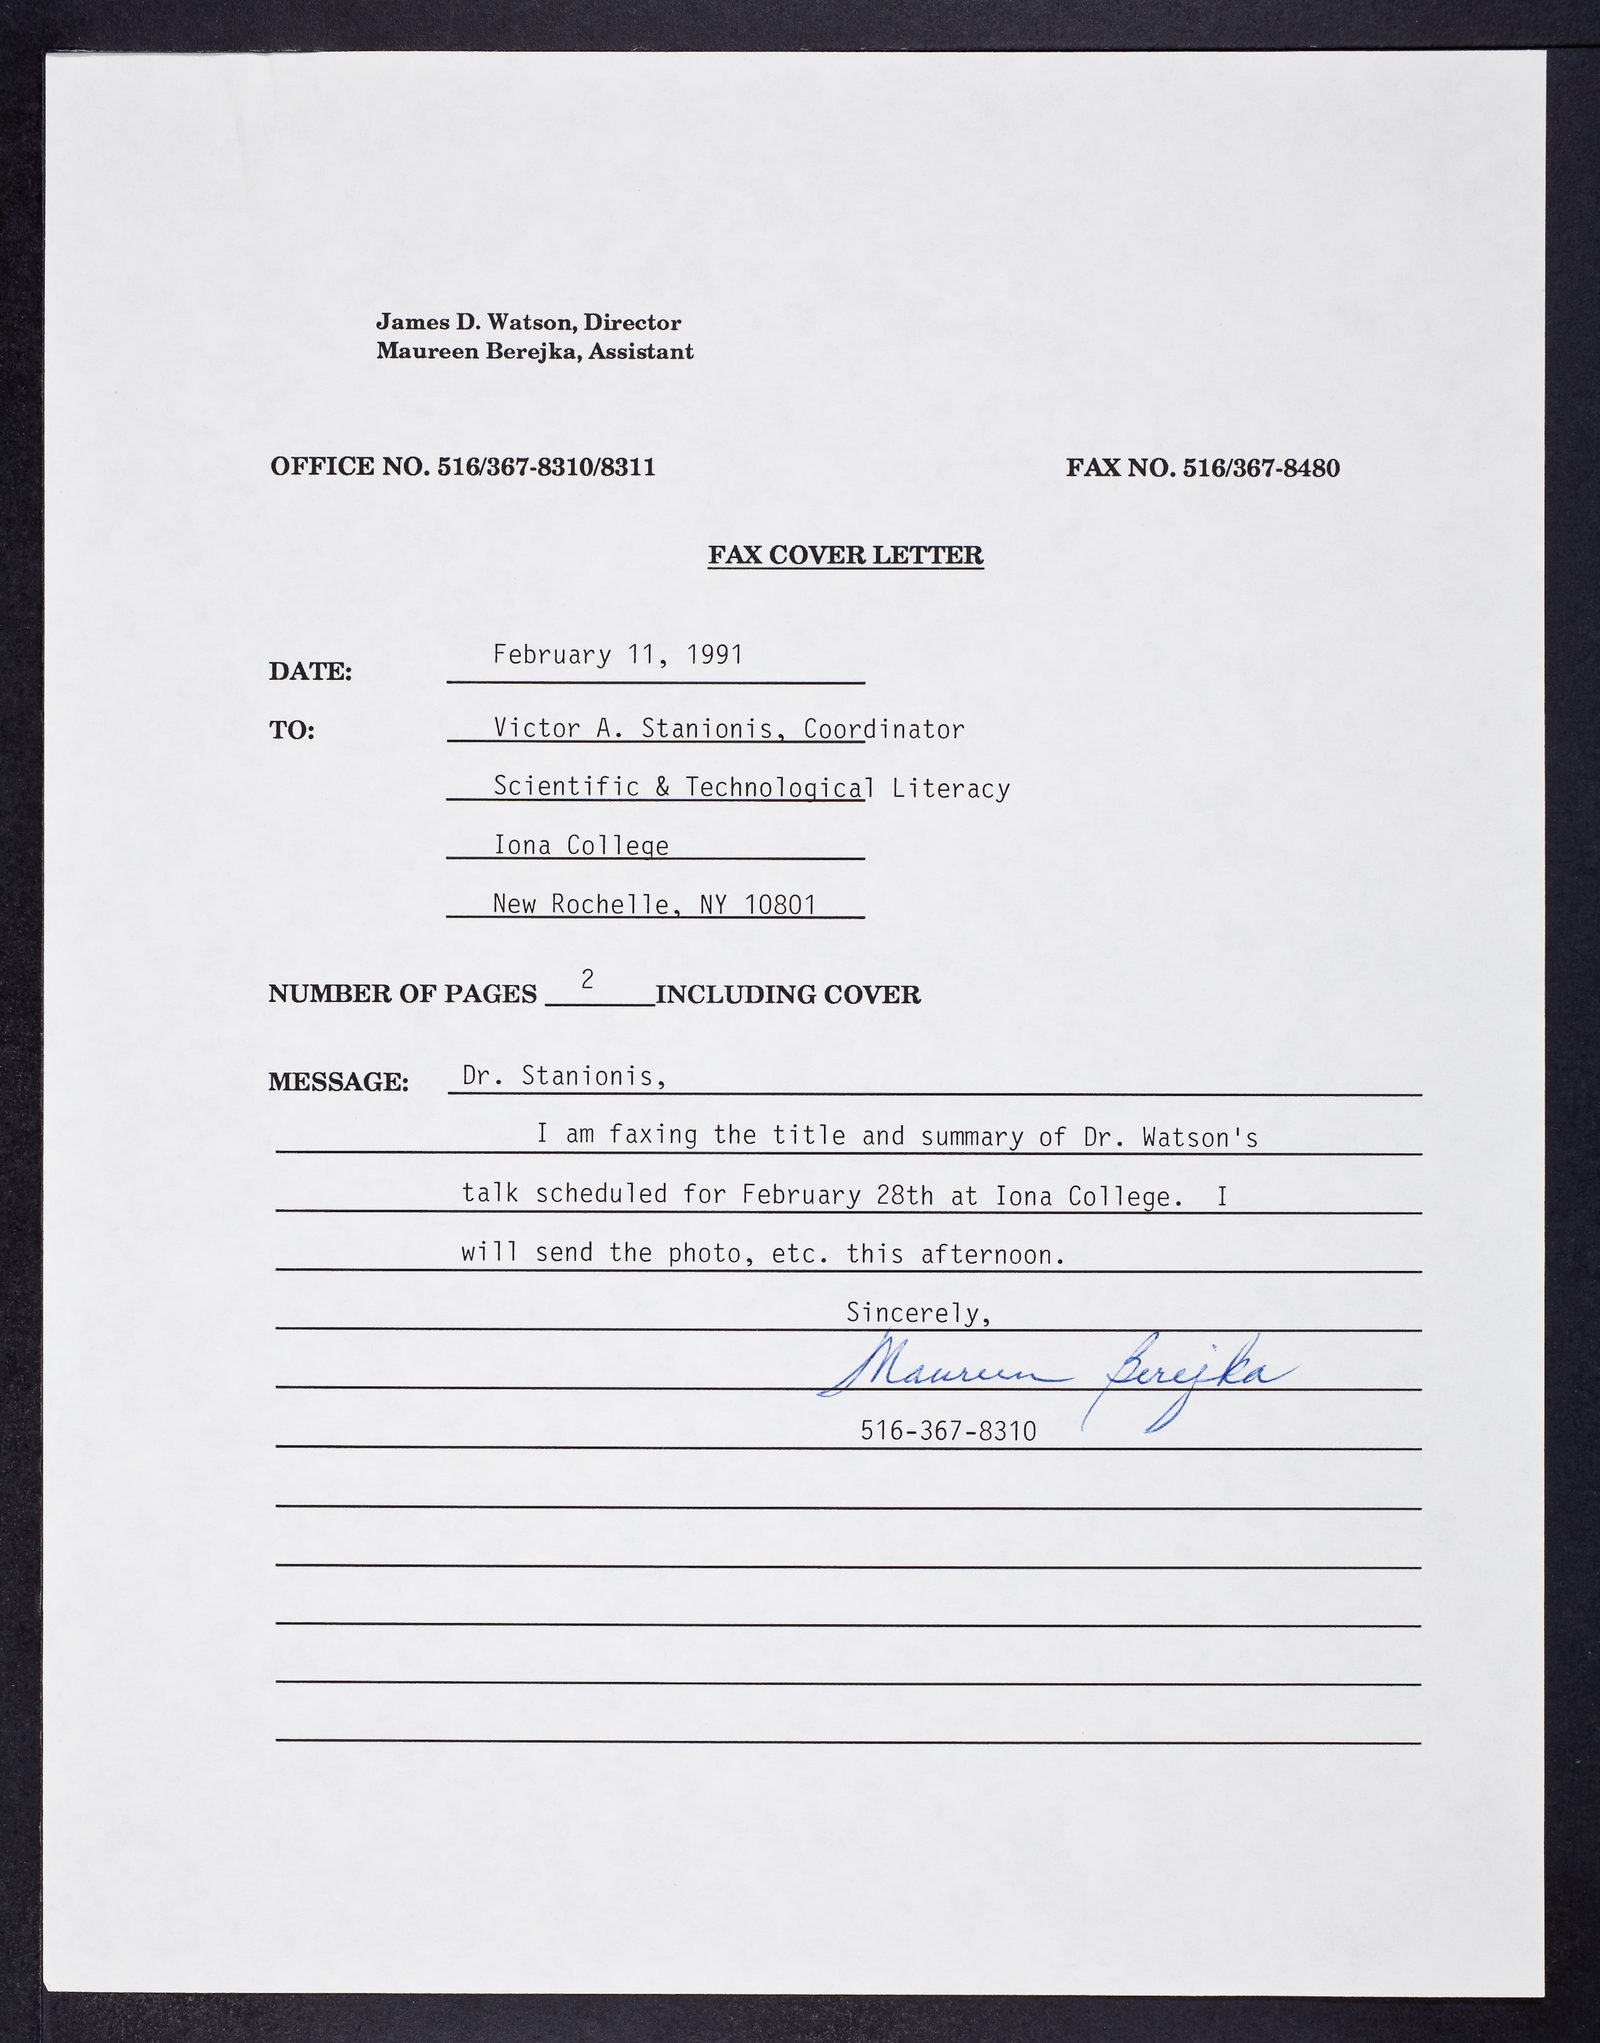 James D. Watson, Director
Maureen Berejka, Assistant
OFFICE NO. 516/367-8310/8311 FAX NO. 516/367-8480
FAX COVER LETTER
DATE: February 11, 1991
TO: Victor A. Stanionis, Coordinator
Scientific & Technological Literacy
Iona College
New Rochelle, NY 10801
NUMBER OF PAGES 2 INCLUDING COVER
MESSAGE: Dr. Stanionis,
I am faxing the title and summary of Dr. Watson's
talk scheduled for February 28th at Iona College. I
will send the photo, etc. this afternoon.
Sincerely,
Maureen Berejka
516-367-8310